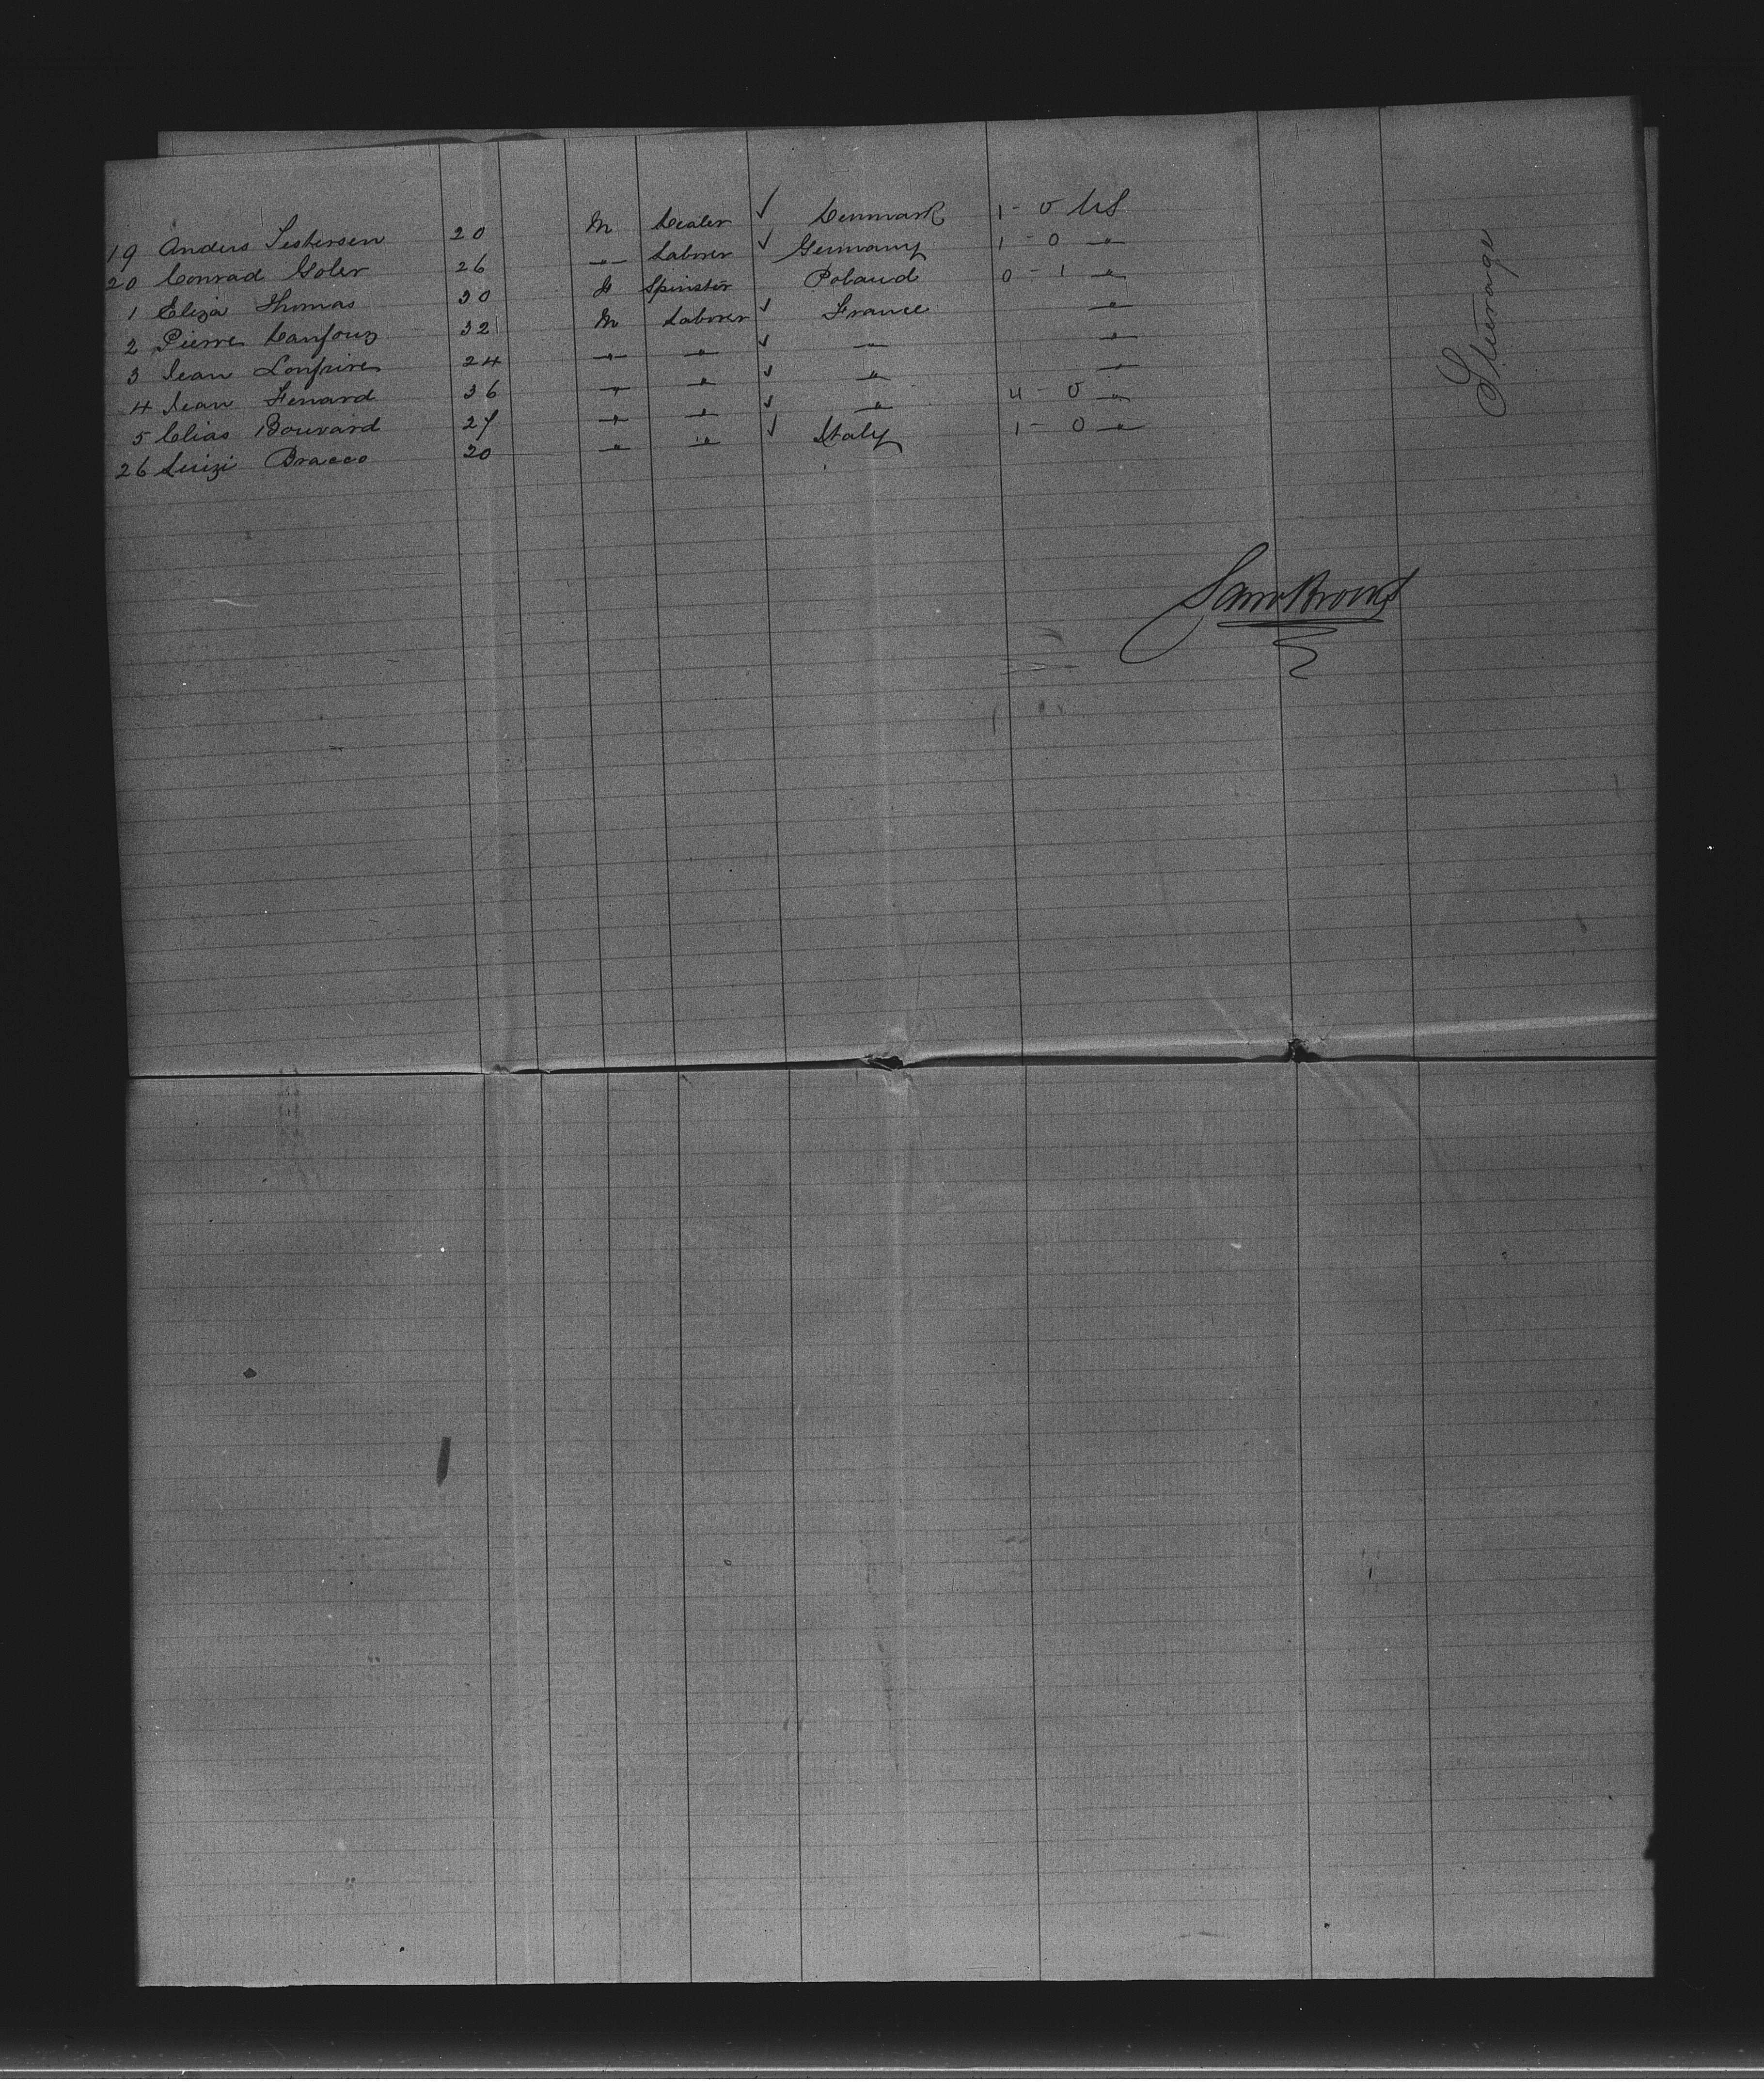 19 Anders Sestersen 20 M Dealer ✓ Denmark 1 - 0 US
20 Conrad Goler 26 " Laborer ✓ Germany 1 - 0 "
1 Eliza Thomas 30 F Spinster Poland 0 - 1 "
2 Pierre 32 M Laborer ✓ France "
3 Jean 24 " " ✓ " "
4 Jean Fenard 36 " " ✓ " "
5 Elias Bouvard 27 " " ✓ " 4 - 0 "
26 Luizi Bracco 20 " " ✓ Italy 1 - 0 "
Steerage